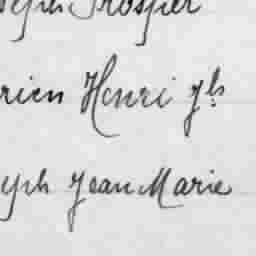 Joseph Prosper
rien Henri fls
eph Jean Marie